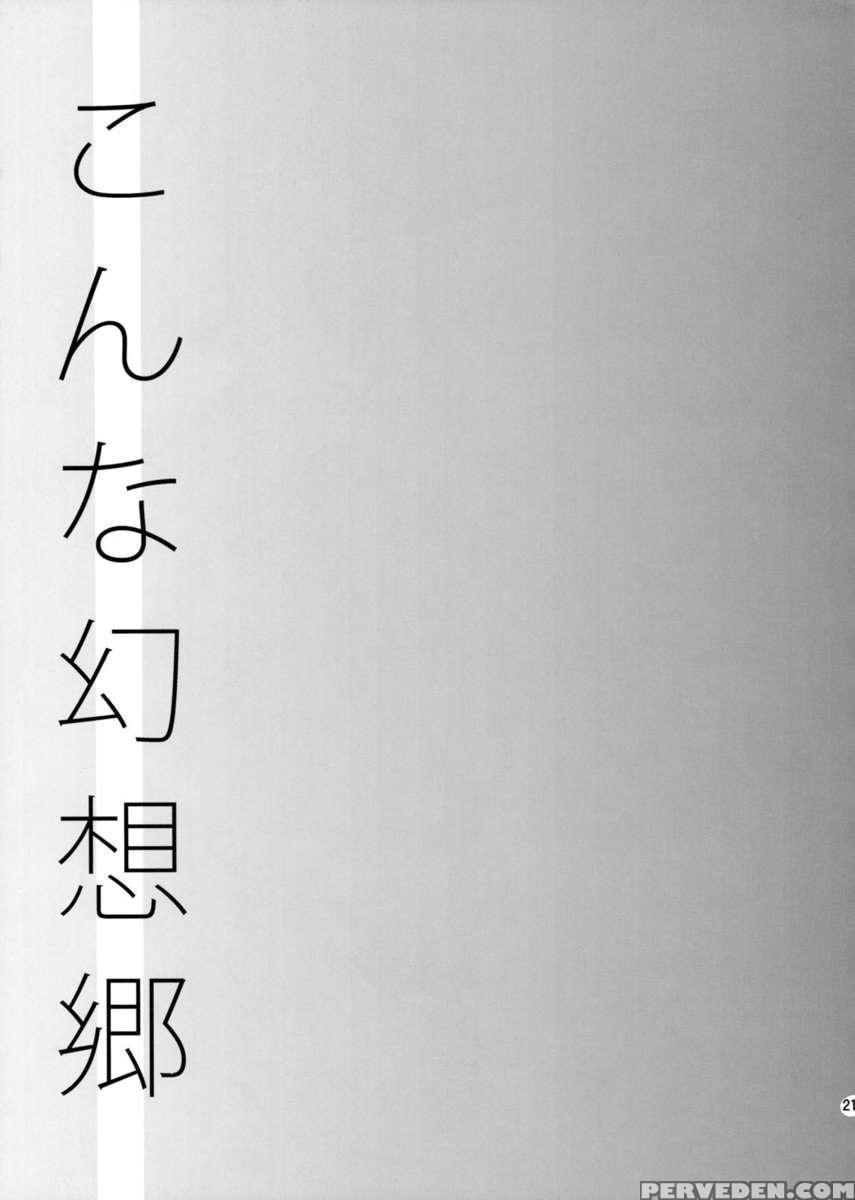 こんな幻想郷
21
PERVEDEN.COM